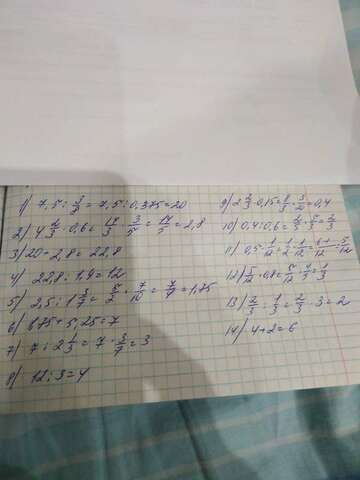 1) 7,5 : 3/8 = 7,5 : 0,375 = 20
2) 4 2/3 · 0,6 = 14/3 · 3/5 = 14/5 = 2,8
3) 20 + 2,8 = 22,8
4) 22,8 : 1,9 = 12
5) 2,5 : 1 3/7 = 5/2 · 7/10 = 7/4 = 1,75
6) 1,75 + 5,25 = 7
7) 7 : 2 1/3 = 7 · 3/7 = 3
8) 12 : 3 = 4
9) 2 2/3 · 0,15 = 8/3 · 3/20 = 0,4
10) 0,4 : 0,6 = 2/5 · 5/3 = 2/3
11) 0,5 - 1/12 = 1/2 - 1/12 = 6-1/12 = 5/12
12) 5/12 · 0,8 = 5/12 · 4/5 = 1/3
13) 2/3 : 1/3 = 2/3 · 3 = 2
14) 4 + 2 = 6